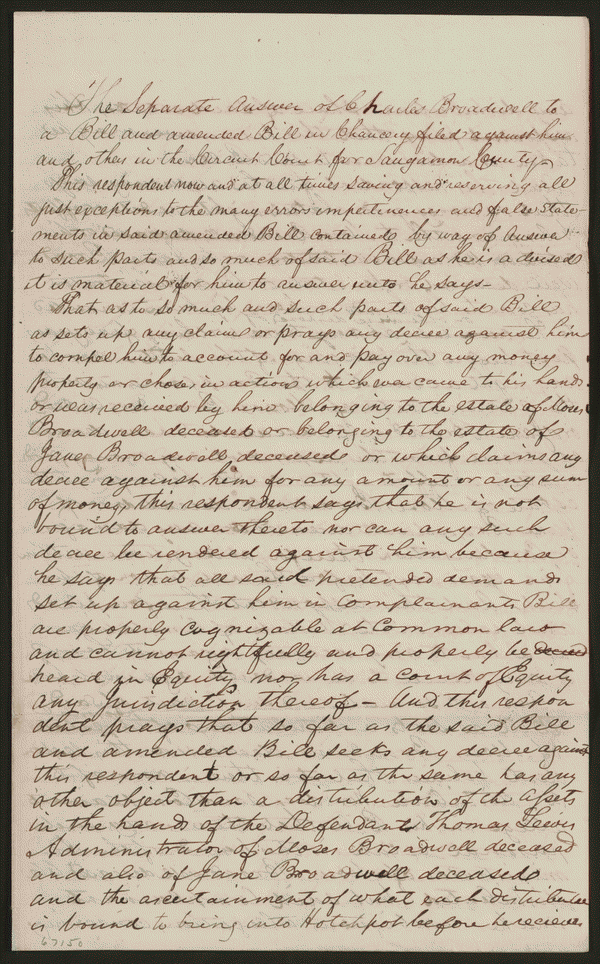 The Separate Answer of Charles Broadwell to
a Bill and amended Bill in Chancery filed against him
and others in the Circuit Court for Sangamon County
This respondent now and at all times saving and reserving all
just exceptions to the many errors impertinences and false state-
ments in said amended Bill contained by way of Answer
to such parts and so much of said Bill as he is advised
it is material for him to answer unto he says -
That as to so much and such parts of said Bill
as sets up any claim or prays any decree against him
to compel him to account for and pay over any money
property or choses in action which ever came to his hands
or was received by him belonging to the estate of Moses
Broadwell deceased or belonging to the estate of
Jane Broadwell deceased or which claims any
decree against him for any amount or any sum
of money, this respondent says that he is not
bound to answer thereto nor can any such
decree be rendered against him because
he says that all said pretended demands
set up against him in Complainants Bill
are properly cognizable at Common law
and cannot rightfully and properly be
heard in Equity nor has a court of Equity
any Jurisdiction thereof - And this respon
dent prays that so far as the said Bill
and amended Bill seeks any decree against
this respondent or so far as the same has any
other object than a distribution of the assets
in the hands of the Defendant Thomas Lewis
Administrator of Moses Broadwell deceased
and also of Jane Broadwell deceased
and the ascertainment of what each distributee
is bound to bring into Hotchpot before he recieves
67150